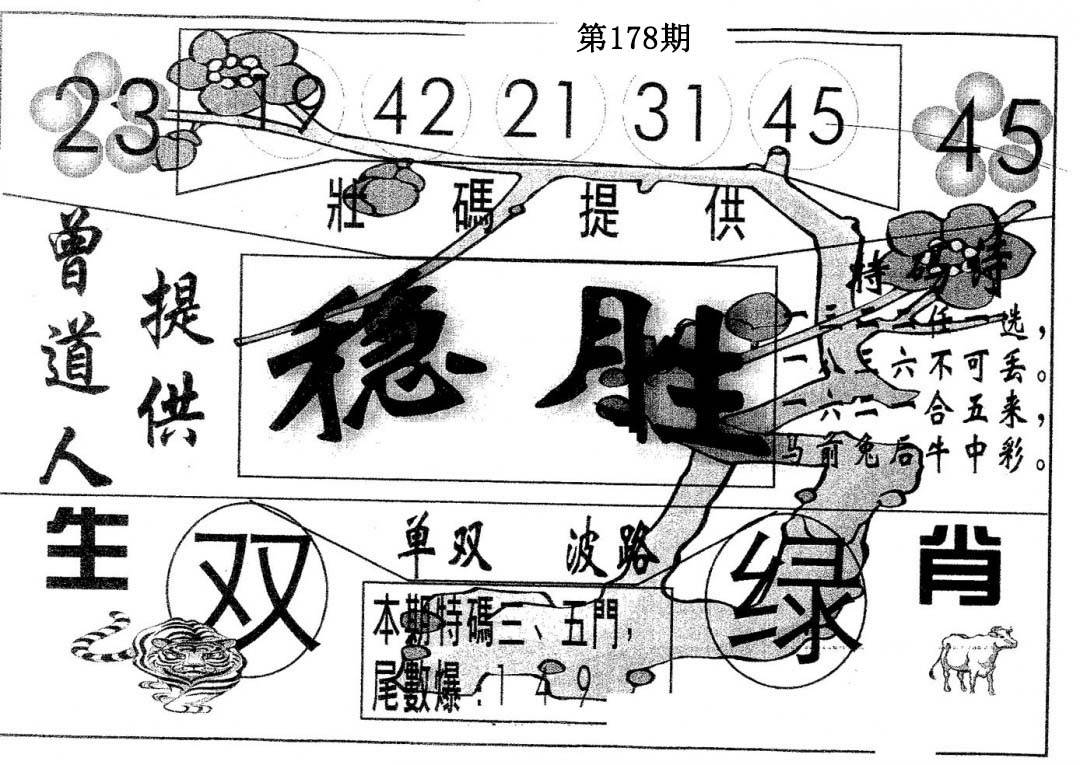 第178期
23 19 42 21 31 45 45
壯碼提供
曾道人
提供
稳胜
特码诗
任一选，
一八三六不可丢。
一六二一合五来，
马前兔后牛中彩。
单双 波路
生 双 绿 肖
本期特碼三、五門，
尾數爆：1 4 9